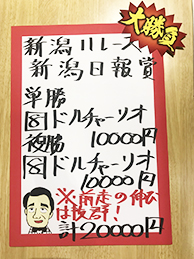 大勝負
新潟11レース
新潟日報賞
単勝
⑧ドルチャーリオ
複勝 10000円
⑧ドルチャーリオ
10000円
※前走の伸び
は抜群!
計20000円